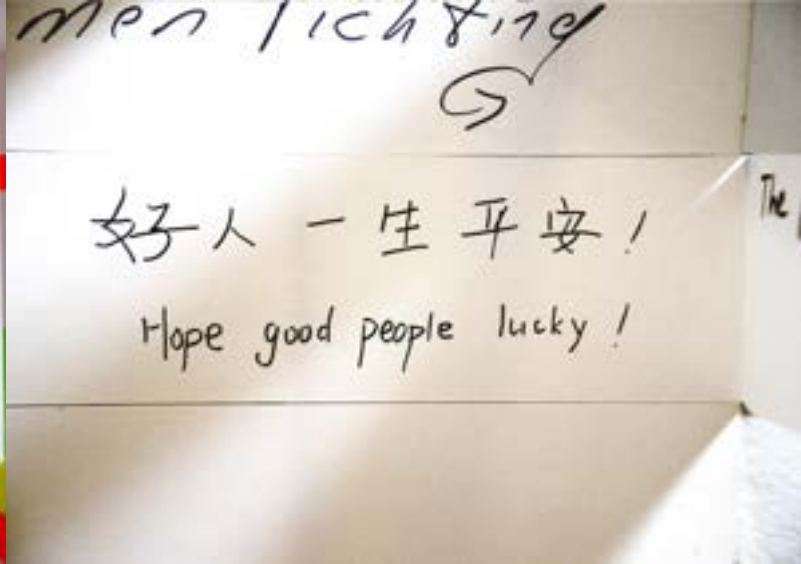 men lichting
好人一生平安!
Hope good people lucky!
The